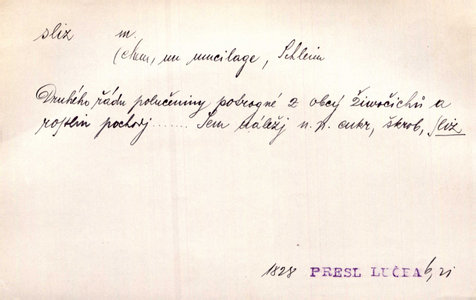 sliz m.
(chem, un mucilage, Schleim
Druhého řádu polučeniny potrogné z obogj Žiwočichů a
rostlin pochodj ........ Sem náležj n. p. cukr, škrob, sliz
1828 PRESL LUČBA 6, 21